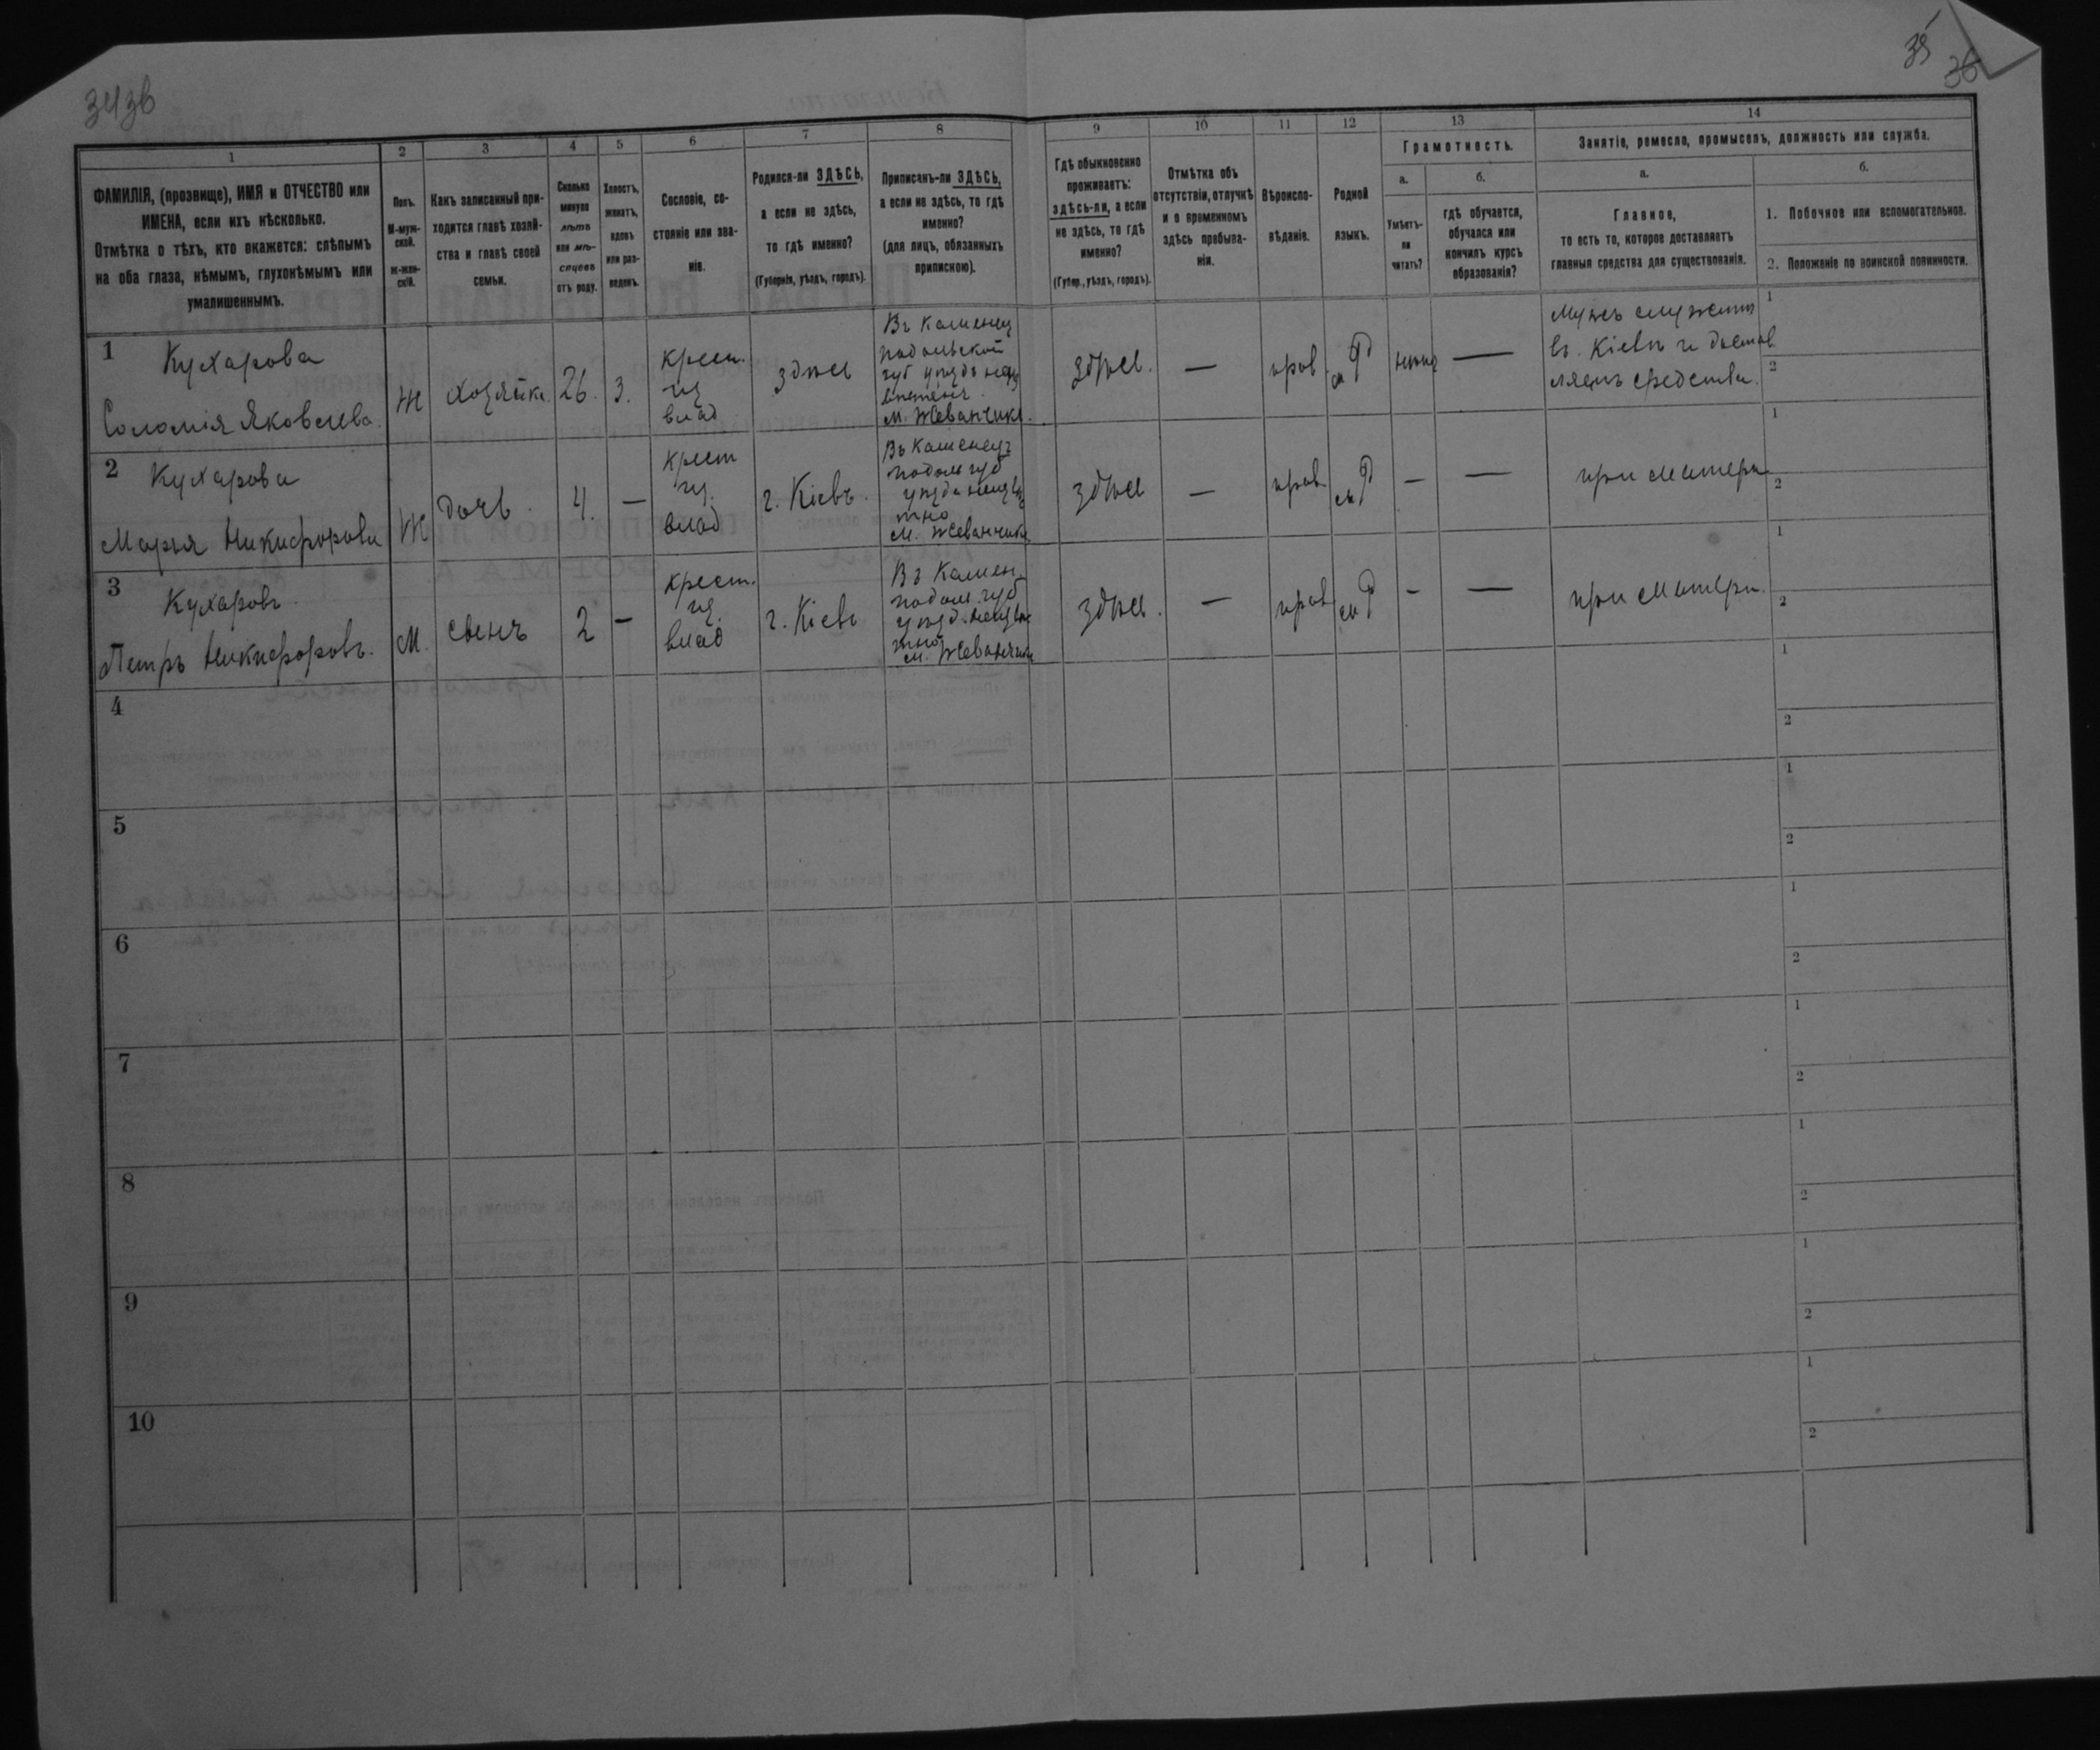 3436
35
36
1
2
3
4
5
6
7
8
9
10
11
12
13
14
ФАМИЛІЯ, (прозвище), ИМЯ и ОТЧЕСТВО или
ИМЕНА, если ихъ нѣсколько.
Отмѣтка о тѣхъ, кто окажется: слѣпымъ
на оба глаза, нѣмымъ, глухонѣмымъ или
умалишеннымъ.
Полъ.
М-муж-
ской.
Ж-жен-
скій.
Какъ записанный при-
ходится главѣ хозяй-
ства и главѣ своей
семьи.
Сколько
минуло
лѣтъ
или мѣ-
сяцевъ
отъ роду.
Холостъ,
женатъ,
вдовъ
или раз-
веденъ.
Сословіе, со-
стояніе или зва-
ніе.
Родился-ли ЗДѢСЬ,
а если не здѣсь,
то гдѣ именно?
(Губернія, уѣздъ, городъ).
Приписанъ-ли ЗДѢСЬ,
а если не здѣсь, то гдѣ
именно?
(для лицъ, обязанныхъ
припискою).
Гдѣ обыкновенно
проживаетъ:
здѣсь-ли, а если
не здѣсь, то гдѣ
именно?
(Губер., уѣздъ, городъ).
Отмѣтка объ
отсутствіи, отлучкѣ
и о временномъ
здѣсь пребыва-
ніи.
Вѣроиспо-
вѣданіе.
Родной
языкъ.
Грамотность.
а.
Умѣетъ-
ли
читать?
б.
гдѣ обучается,
обучался или
кончилъ курсъ
образованія?
Занятіе, ремесло, промыселъ, должность или служба.
а.
Главное,
то есть то, которое доставляетъ
главныя средства для существованія.
б.
1. Побочное или вспомогательное.
2. Положеніе по воинской повинности.
1
Кухарова
Соломія Яковлева
Ж
хозяйка
26.
з.
крест.
из
влад
здѣсь
Въ Каменец
подольской
губ
м. Жеванчики.
здѣсь.
—
прав
м р
—
Мужъ служитъ
въ. Кіевѣ и достав
ляетъ средства.
1
2
2
Кухарова
Марья Никифорова
Ж
дочь.
4.
—
крест
из.
влад
г. Кіевъ.
Въ Каменецъ
подол губ
м. Жеванчики
здѣсь
—
прав
м р
—
—
при матери
1
2
3
Кухаровъ
Петръ Никифоровъ.
М.
сынъ
2
—
крест.
из.
влад
г. Кіевъ
Въ Камен.
подол. губ
м. Жеванчики
здѣсь.
—
прав
м р
—
—
при матери
1
2
4
1
2
5
1
2
6
1
2
7
1
2
8
1
2
9
1
2
10
1
2